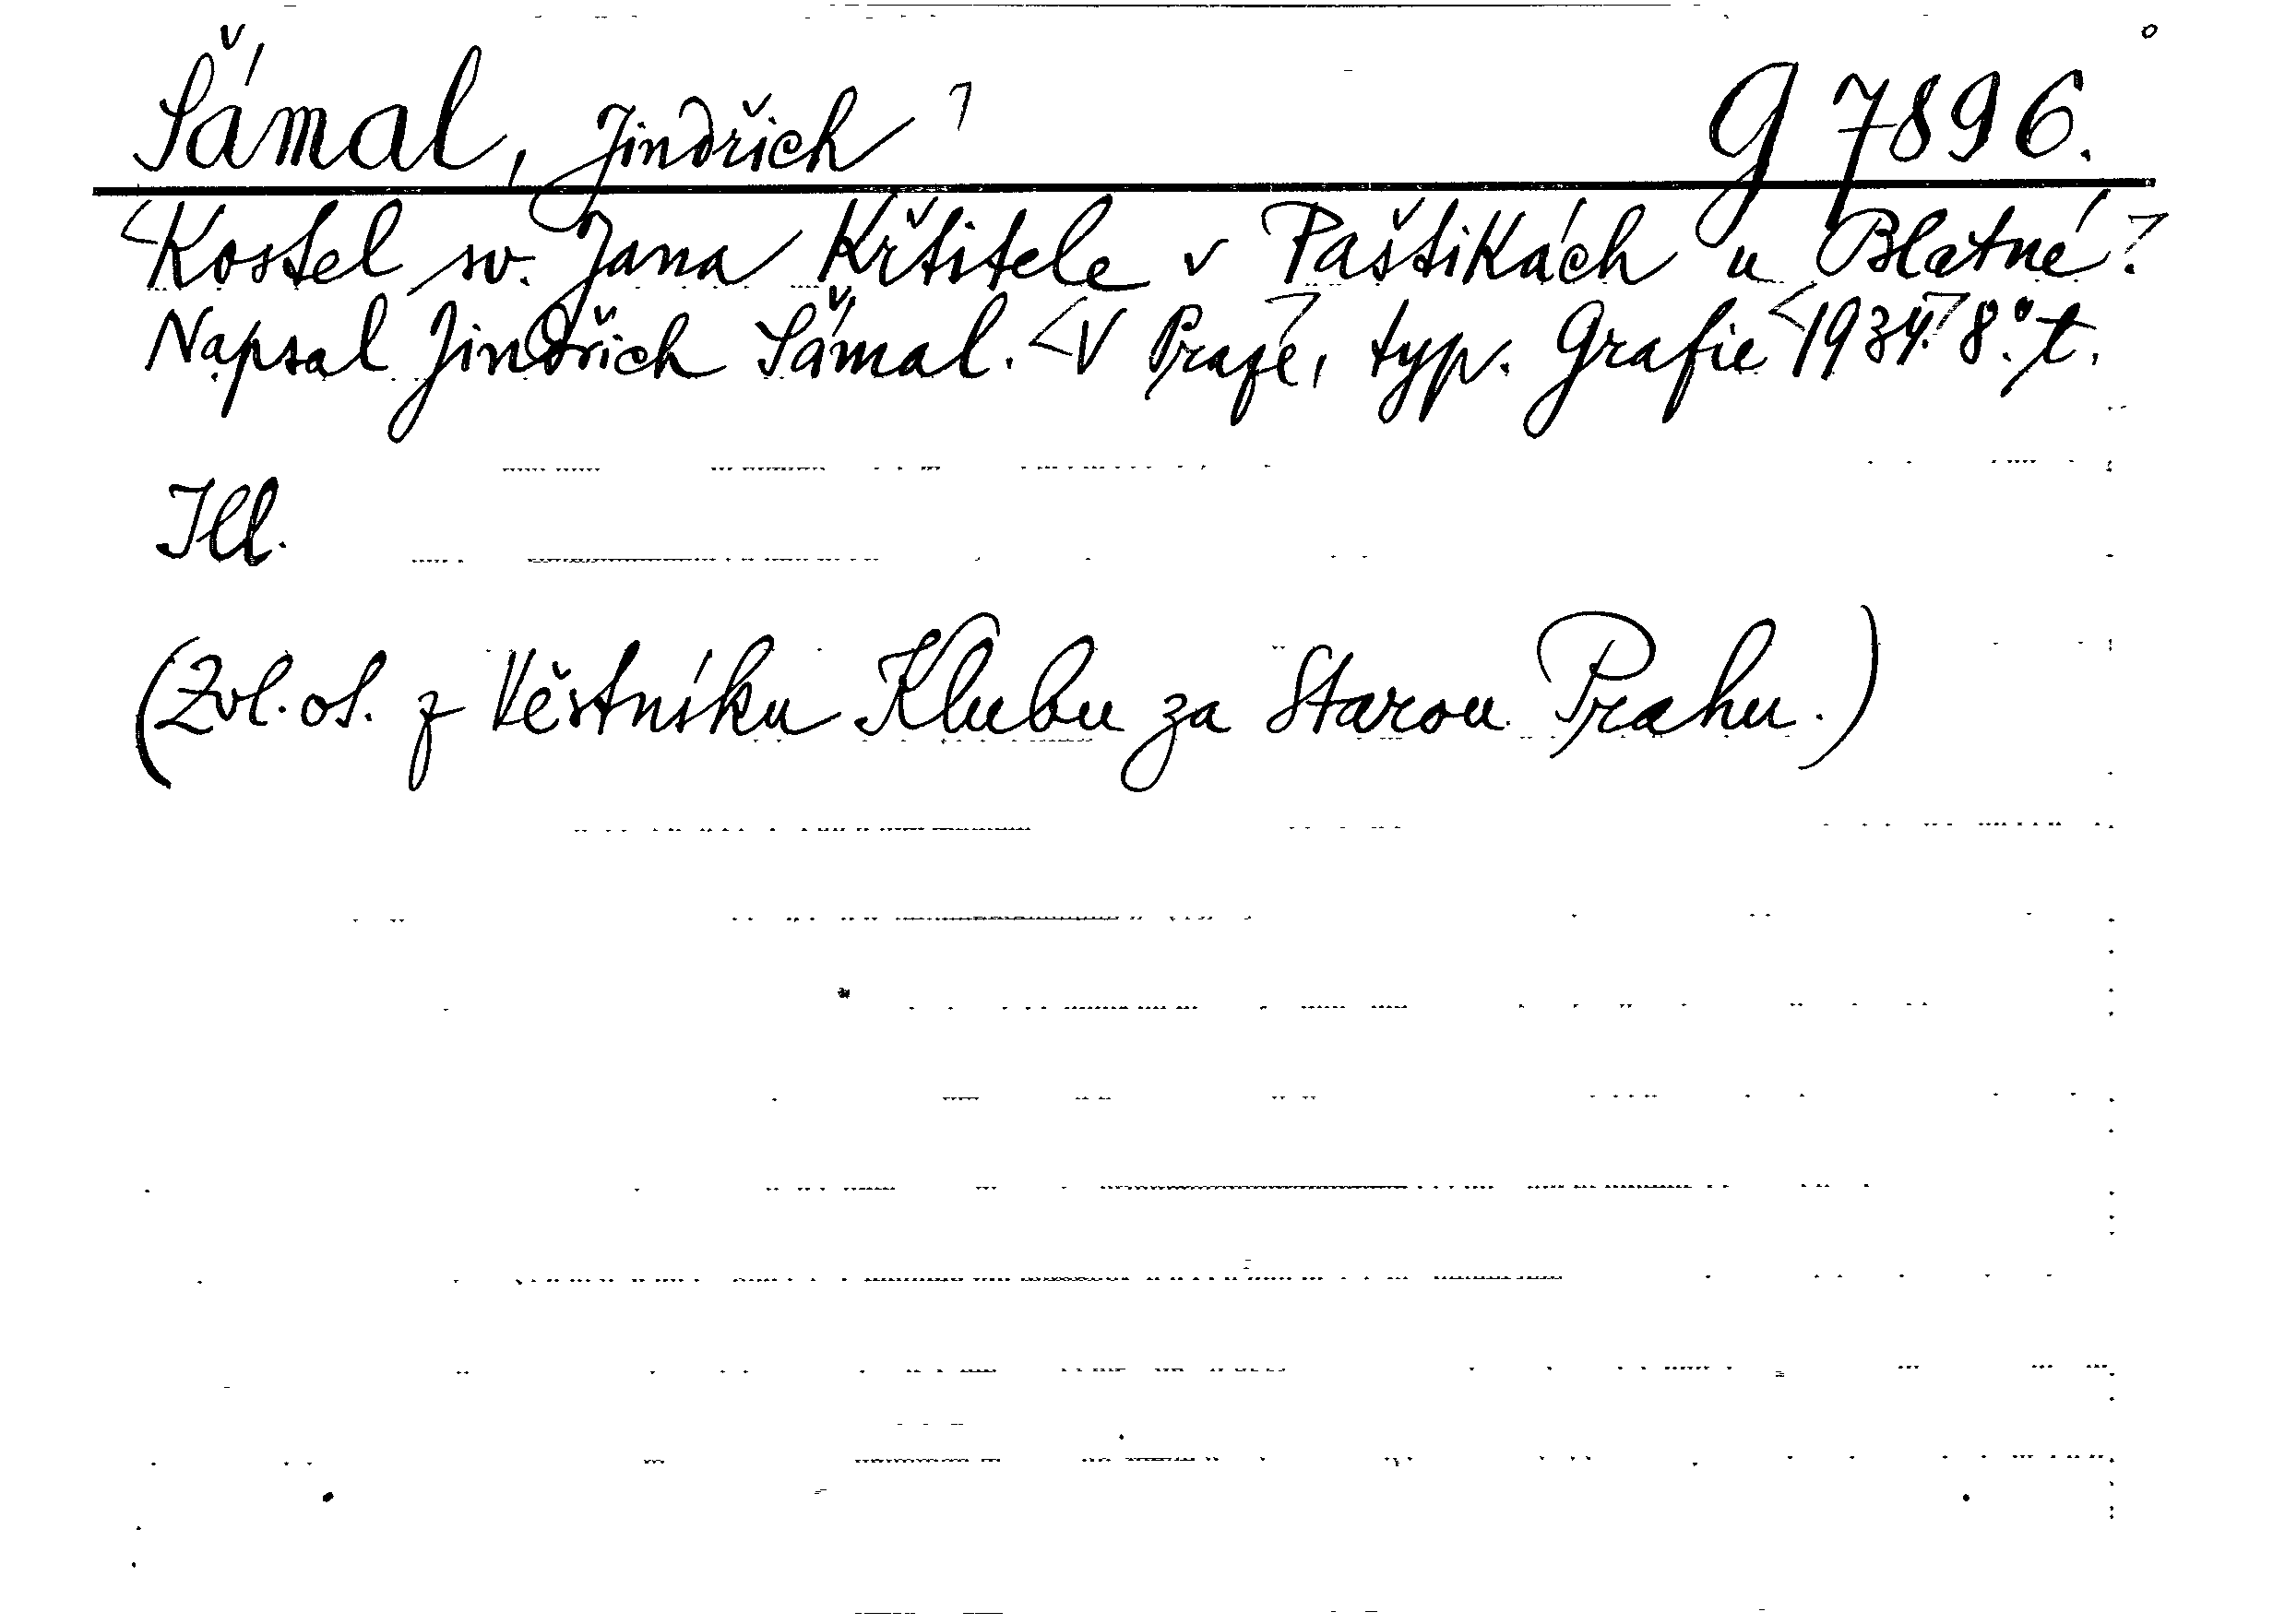 Šámal, Jindřich G 7896.
Kostel sv. Jana Křtitele v Paštikách u Blatné.
Napsal Jindřich Šámal. V Praze, typ. Grafie 1934. 8°. t.
Ill.
(Zvl. ot. z Věstníku Klubu za Starou Prahu.)